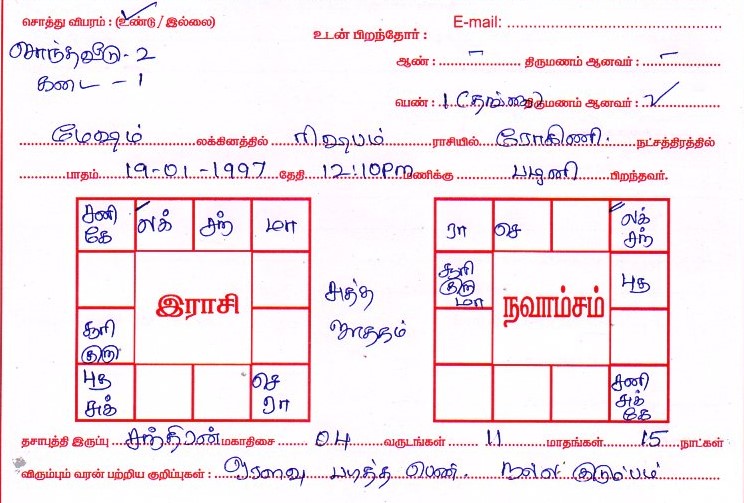 சொத்து விபரம் : (உண்டு / இல்லை)
E-mail:
உடன் பிறந்தோர் :
சொந்தவீடு - 2
ஆண் : - திருமணம் ஆனவர் : -
கடை - 1
பெண் : 1 திருமணம் ஆனவர் : ✓
மேஷம் லக்கினத்தில் ரிஷபம் ராசியில் ரோகிணி நட்சத்திரத்தில்
பாதம் 19-01-1997 தேதி 12:10Pm மணிக்கு பழனி பிறந்தவர்.
சனி கே லக் சந் மா
ரா செ லக் சந்
சூரி குரு மா புத
இராசி
சுத்த ஜாதகம்
நவாம்சம்
சூரி குரு
புத சுக் செ ரா
சனி சுக் கே
தசாபுத்தி இருப்பு சந்திரன் மகாதிசை 04 வருடங்கள் 11 மாதங்கள் 15 நாட்கள்
விரும்பும் வரன் பற்றிய குறிப்புகள் : ஓரளவு படித்த பெண். நல்ல குடும்பம்